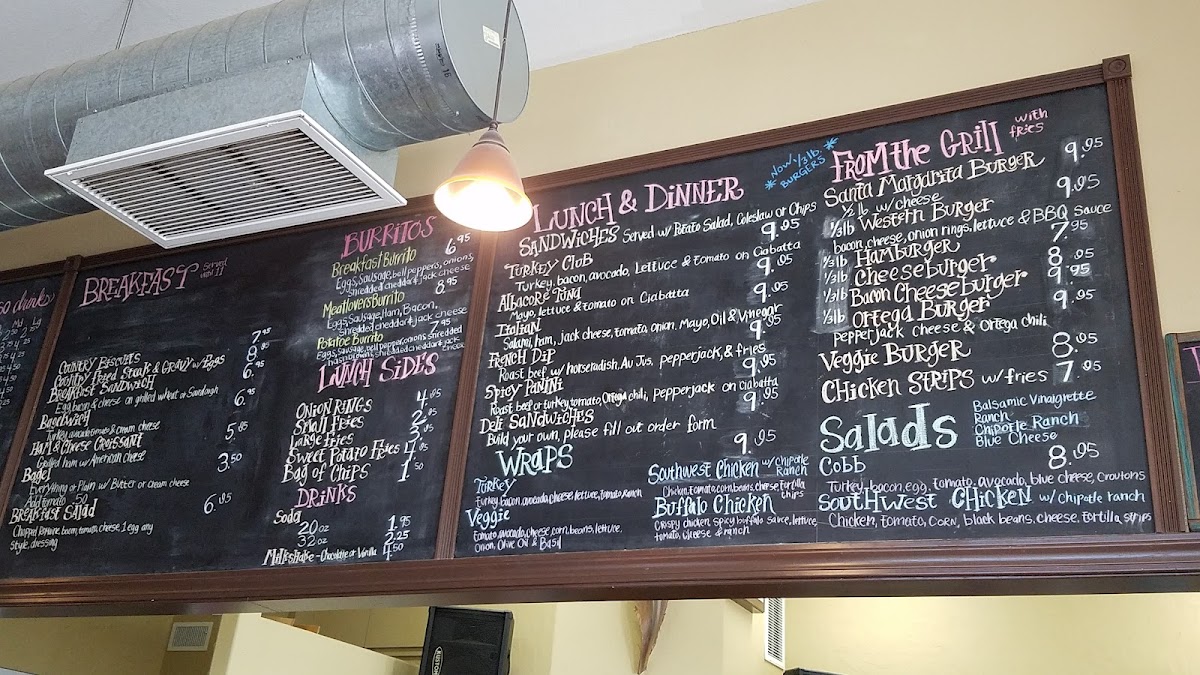 50 drinks
Md Lg
BREAKFAST Served until 11
Country Biscuits 7.95
Country Fried Steak & Gravy w/Eggs 8.95
Breakfast Sandwich 6.95
Egg bacon & cheese on grilled wheat or Sourdough
Bagelwich 6.95
Turkey avocado tomato & cream cheese
Ham & Cheese Croissant 5.95
Grilled ham w/ American cheese
Bagel 3.50
Everything or Plain w/ Butter or cream cheese
Add tomato .50
Breakfast Salad 6.95
Chopped Romaine, bacon, tomato, cheese, 1 egg any
style, dressing
BURRITOS
Breakfast Burrito 6.95
Eggs, Sausage, bell peppers, onions,
shredded cheddar & jack cheese
Meatlovers Burrito 8.95
Eggs, Sausage, Ham, Bacon,
shredded cheddar & jack cheese
Potatoe Burrito 7.95
Eggs, Sausage, bell pepper, onions, shredded
hashbrowns, shredded cheddar & jack
cheese
LUNCH SIDES
Onion Rings
Small Fries
Large Fries
Sweet Potato Fries
Bag of Chips 1.50
DRINKS
Soda
20 oz 1.95
32 oz 2.25
Milkshake - Chocolate or Vanilla 4.50
LUNCH & DINNER
SANDWICHES Served w/ Potato Salad, Coleslaw or Chips
Turkey Club 9.95
Turkey, bacon, avocado, Lettuce & tomato on Ciabatta
Albacore Tuna 9.95
Mayo, lettuce & tomato on Ciabatta
Italian 9.95
Salami, ham, jack cheese, tomato, onion, Mayo, Oil & Vinegar
French Dip 9.95
Roast beef w/ horseradish, Au Jus, pepperjack, & fries
Spicy Panini 9.95
Roast beef or turkey, tomato, Ortega chili, pepperjack on ciabatta
Deli Sandwiches 9.95
Build your own, please fill out order form
WRAPS 9.95
Turkey
Turkey, bacon, avocado, cheese, lettuce, tomato, Ranch
Veggie
Tomato, avocado, cheese, corn, beans, lettuce,
Onion, Olive Oil & Basil
Southwest Chicken w/ chipotle Ranch
Chicken, tomato, corn, beans, cheese, tortilla
strips
Buffalo Chicken
Crispy chicken, spicy buffalo sauce, lettuce,
tomato, cheese & ranch
*NOW 1/3 lb. BURGERS*
FROM the GRILL with fries
Santa Margarita Burger 9.95
1/2 lb w/ cheese
1/3 lb Western Burger 9.95
bacon, cheese, onion rings, lettuce & BBQ Sauce
1/3 lb Hamburger 7.95
1/3 lb Cheeseburger 8.95
1/3 lb Bacon Cheeseburger 9.95
1/3 lb Ortega Burger 9.95
Pepperjack cheese & Ortega chili
Veggie Burger 8.95
Chicken Strips w/ fries 7.95
Salads
Balsamic Vinaigrette
Ranch
Chipotle Ranch
Blue Cheese
8.95
Cobb
Turkey, bacon, egg, tomato, avocado, blue cheese, Croutons
Southwest Chicken w/ chipotle ranch
Chicken, Tomato, Corn, black beans, cheese, Tortilla, strips
KUSTOM